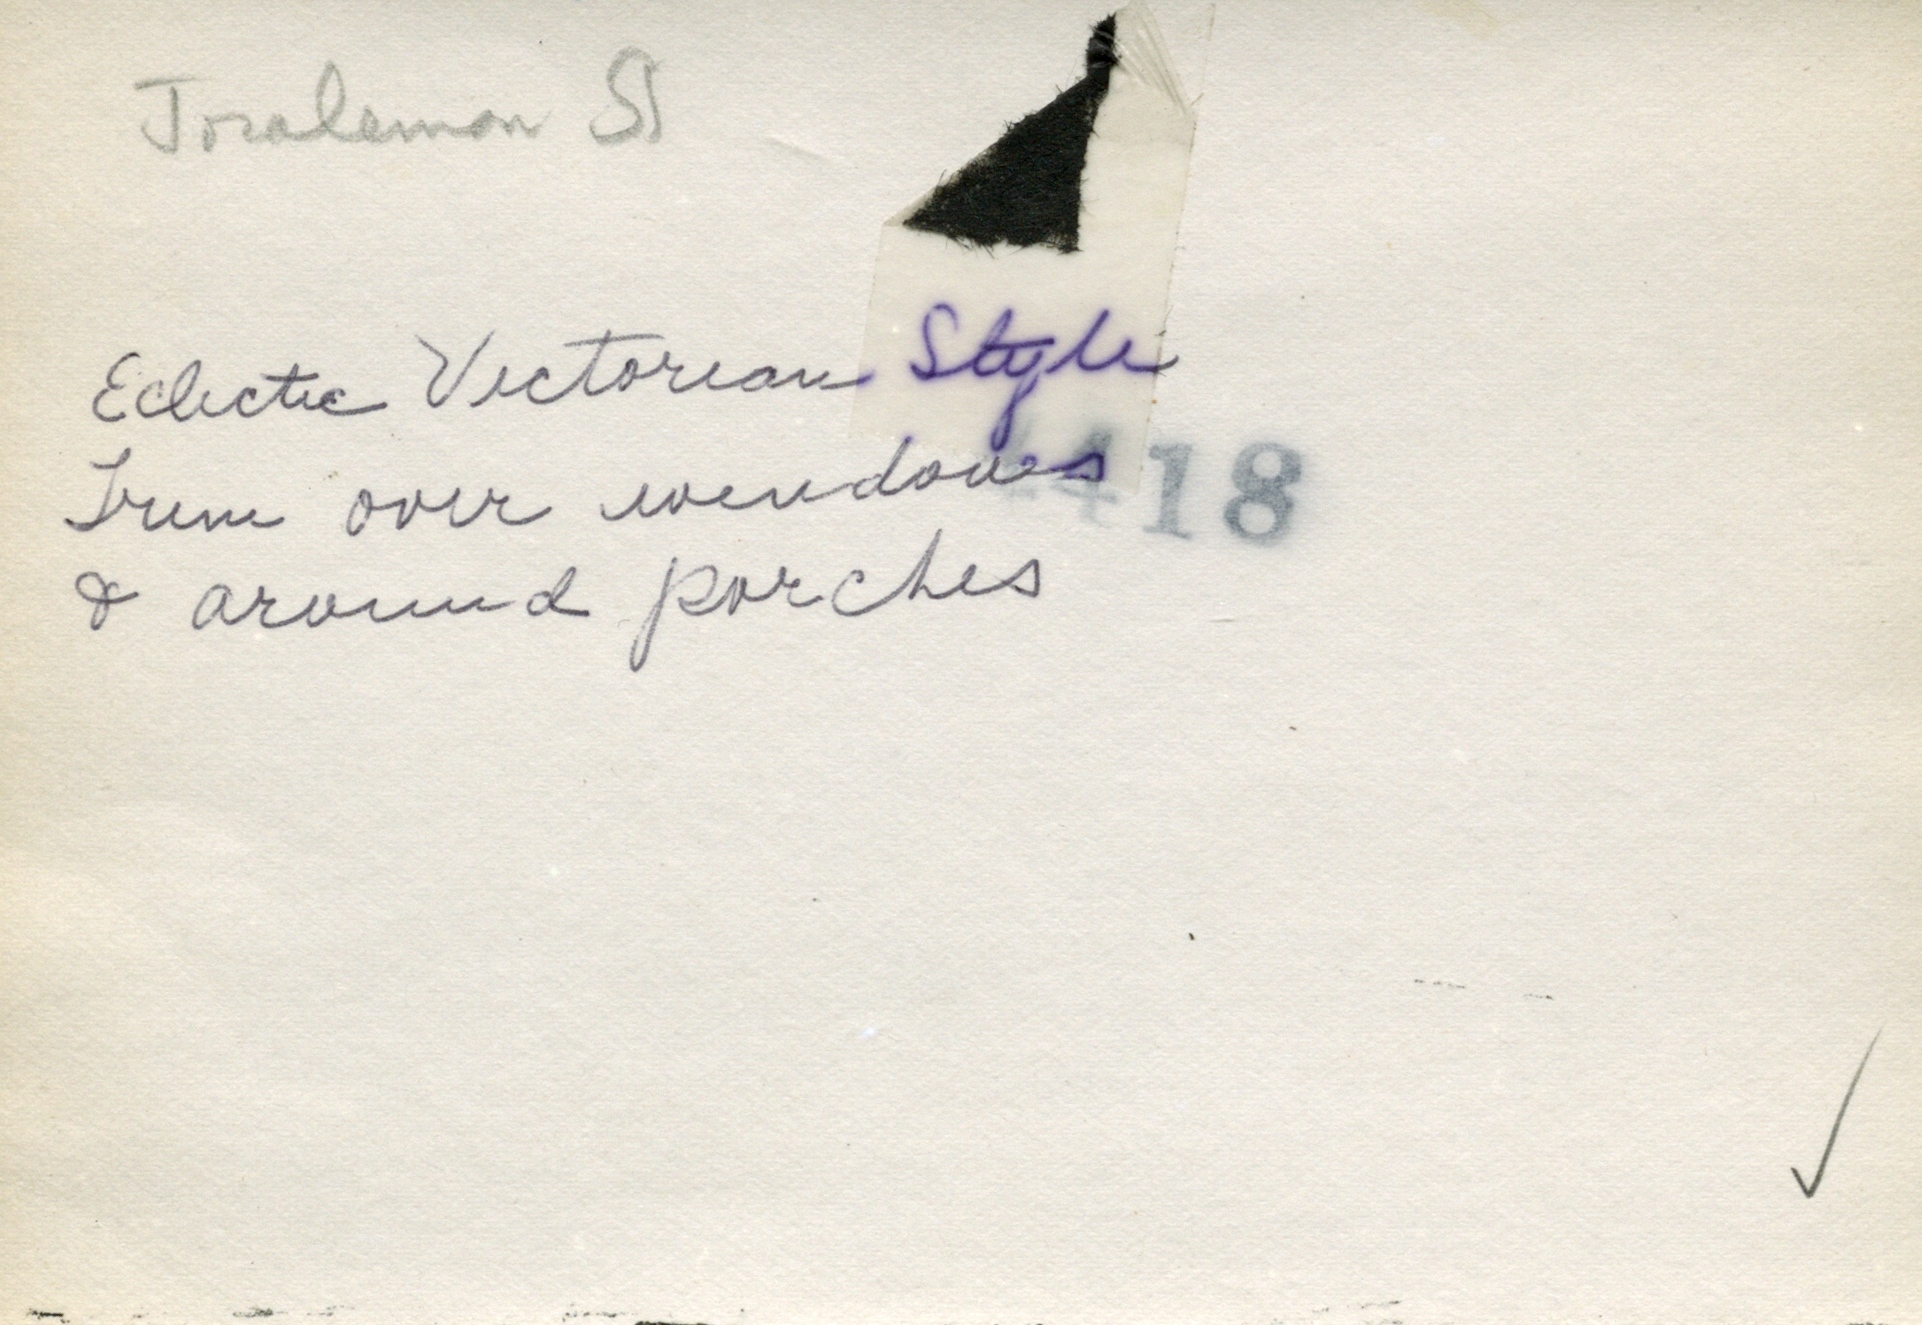 Joralemon St
Eclectic Victorian Style
Trim over windows
418
& around porches